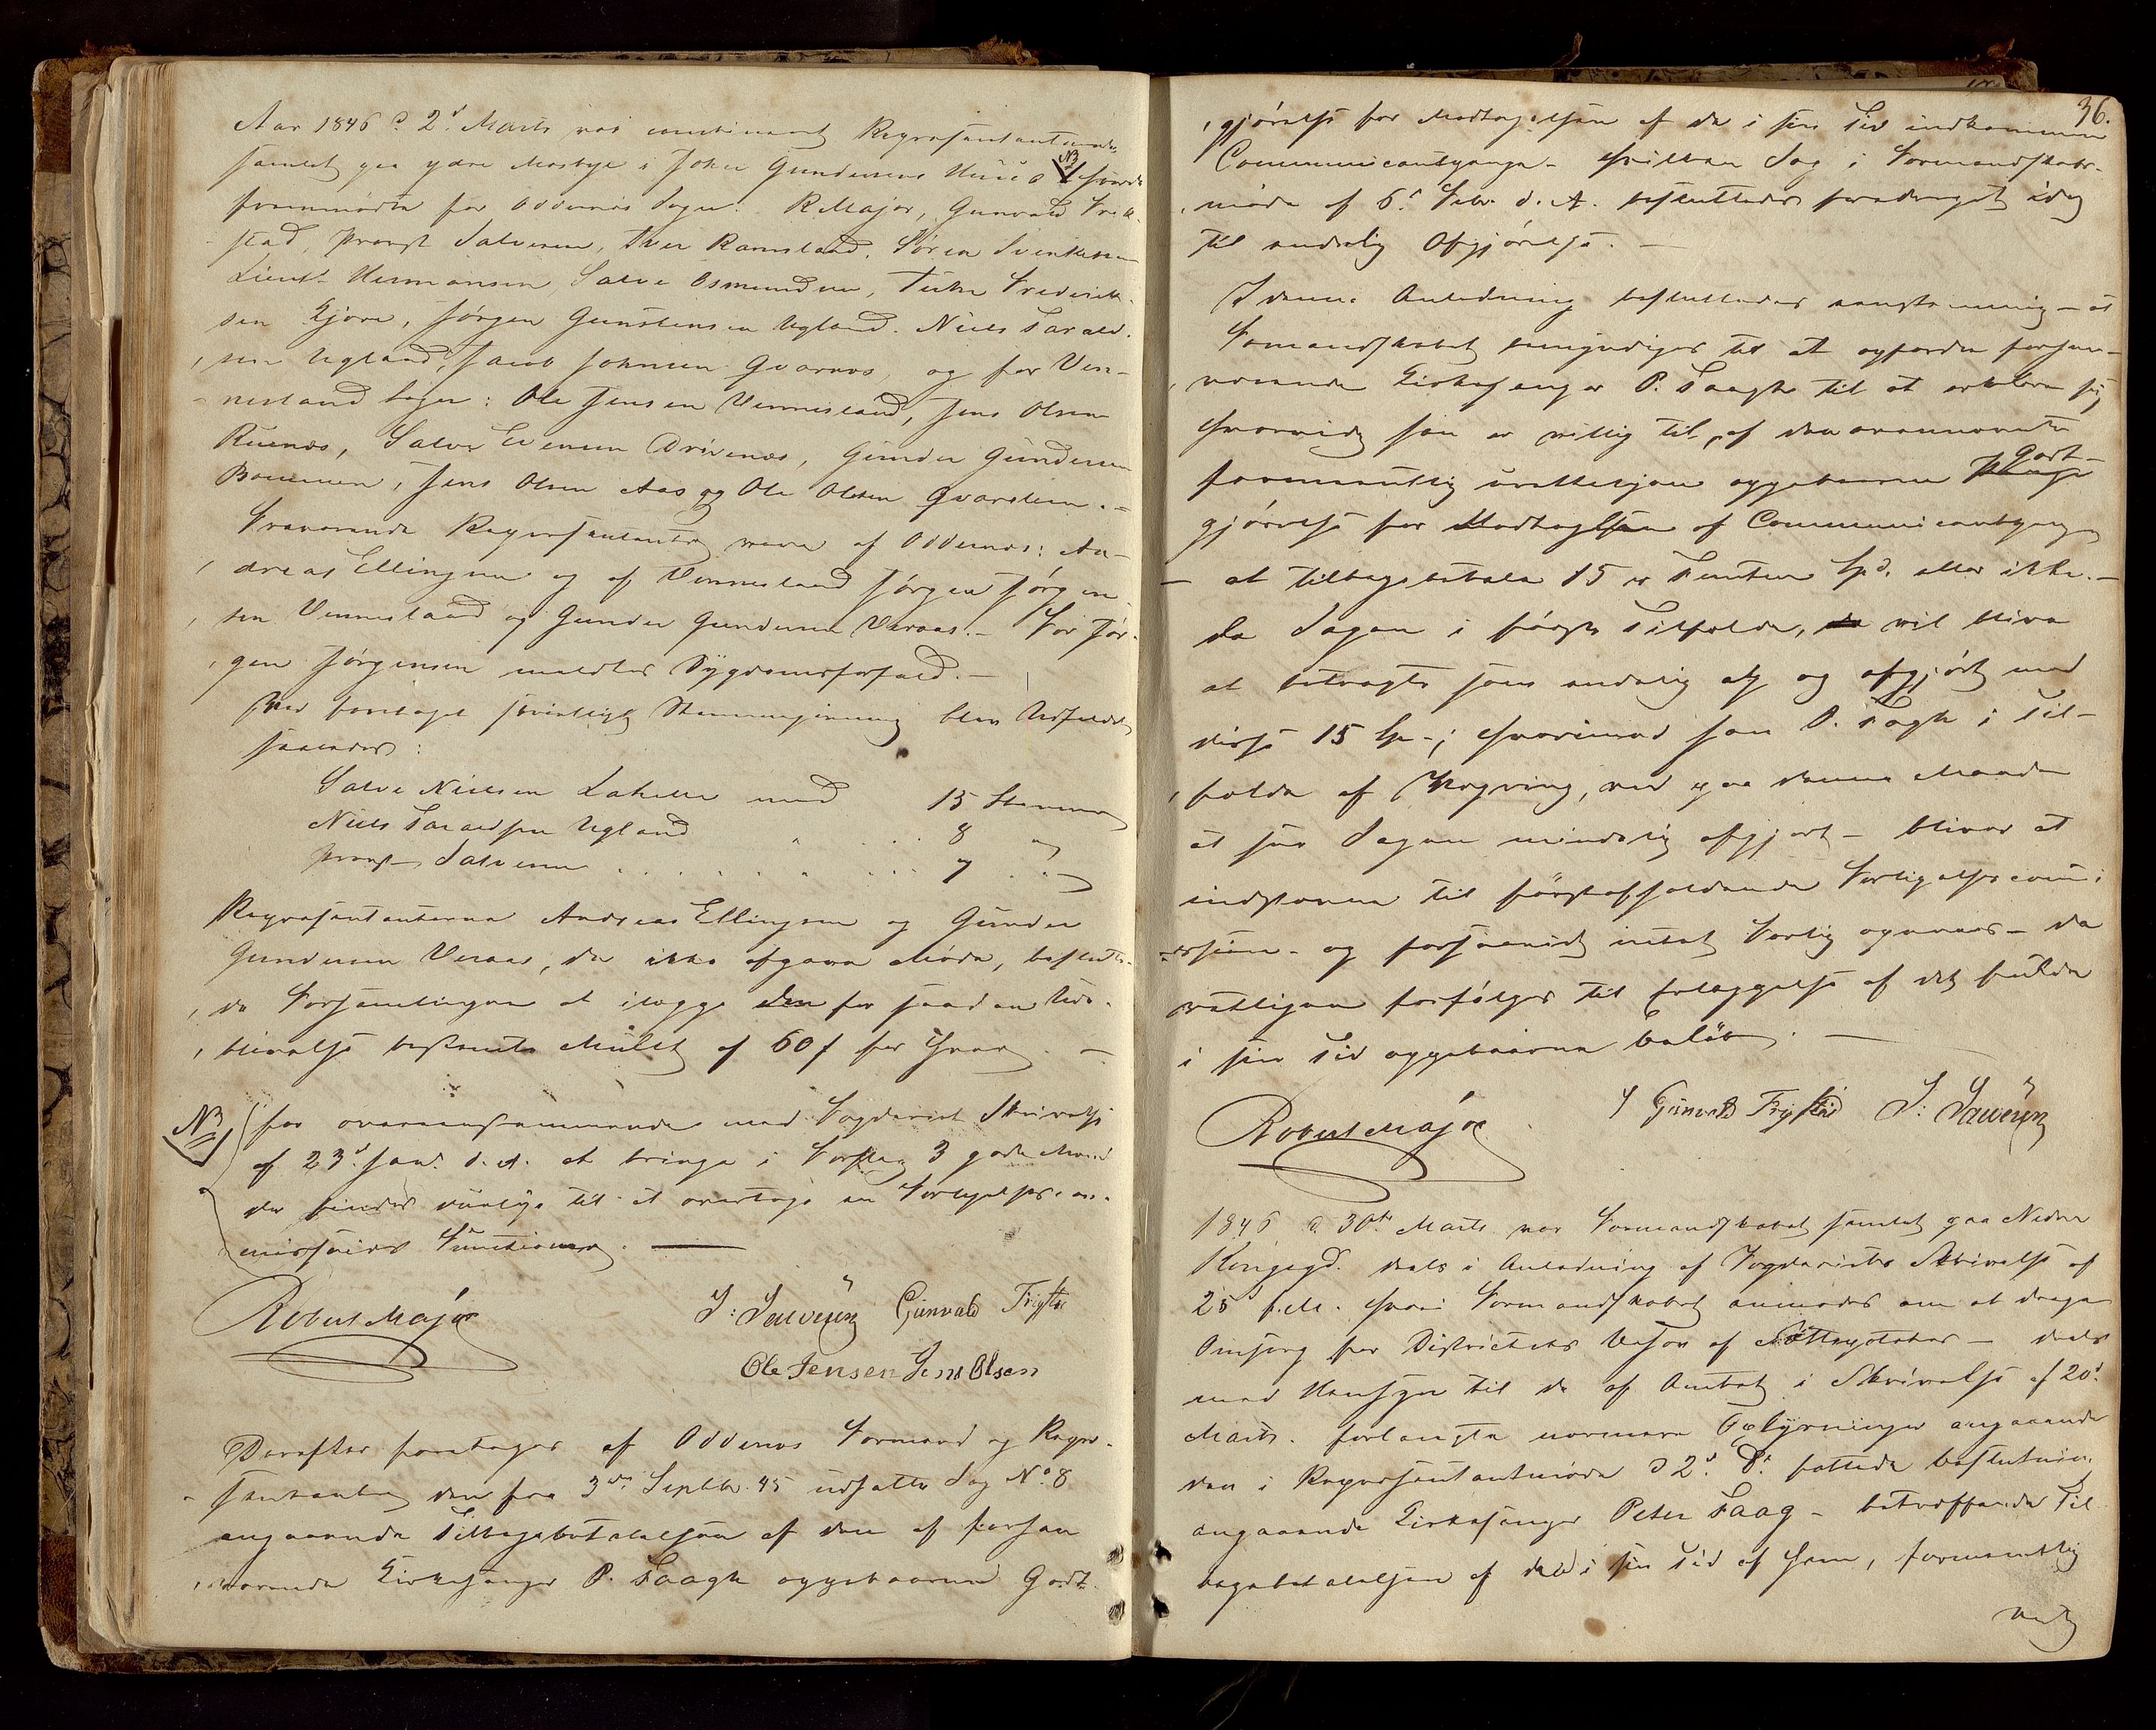 Aar 1846 d. 2d Marts var combineret Repræsentantmøde
samlet paa ydre Mosbye i John Gundersens Huus NB hvorda
fremmødte for Oddernæs Sogn: R. Major, Gunvald Frik-
stad, Provst Salvesen, Iver Ramsland, Søren Svenkesen
Lieut. Hermansen, Salve Osmundsen, Terke Frederik-
sen Gjøre, Jørgen Gunstensen Ugland, Niels Tarald-
sen Ugland, Jacob Johnsen Qvarnes, og for Ven-
nesland Sogn: Ole Jensen Vennesland, Jens Olsen
Ruenæs, Salve Evensen Drivenæs, Gunder Gundersen
Bommen, Jens Olsen Aas og Ole Olsen Qvarstein.-
Fraværende Repræsentanter vare af Oddernæs: An-
dreas Ellingsen og af Vennesland Jørgen Jørgen-
sen Vennesland og Gunder Gundersen Veraas.- For Jør-
gen Jørgensen meldtes Sygdomsforfald.-
Ved foretaget skriftligt Stemmegivning blev Udfaldet
saaledes:
Salve Nielsen med 15 Stemmer
Niels Taraldsen Ugland 8 "
Provst Salvesen 7 "
Repræsentanterne Andreas Ellingsen og Gunder
Gundersen Veraas, der ikke afgave Møde, beslutte-
de Forsamlingen at ilægge den for saadan Ude-
blivelse bestemte Mulct af 60 f for hver.-
NB for overeensstemmende med Fogderiets Skrivelse
af 23d Jan. d. A. at bringe i Forslag 3 gode Mænd
der findes duelige til at overtage en Forligelsescom-
missairs Functioner.
Robert Major J: Salvesen Gunvald Frigstad
Ole Jensen Jens Olsen
Derefter foretages af Oddernæs Formand og Repræ-
sentanter den fra 3die Septbr. 45 udsatte Sag No 8
angaaende Tilbagebetalelsen af den af forhen-
værende Kirkesanger P. Taagh oppebaarne Godt-
36.
gjørelse for Modtagelsen af de i sin Tid indkommne
Communicantpenge - hvilken Sag i Formandskabs-
møde af 6te Febr. d. A. besluttedes foredraget idag
til endelig Afgjørelse.-
I denne Anledning besluttedes eenstemmig - at
Formandskabet bemyndiges til at opfordre forhen-
værende Kirkesanger P. Taagh til at erklære sig
hvorvidt han er villig til, af den ovennævnte
formeentlig uretteligen oppebaarne Godt-
gjørelse for Modtagelsen af Communicantpenge
- at tilbagebetale 15 er Femten Spd. eller ikke.-
da Sagen i første Tilfælde, vil blive
at betragte som endelig og afgjort med
disse 15 Sp -; hvorimod han P. Taagh i Til-
fælde af Vægring, ved paa denne Maade
at faae Sagen mindelig afgjort - bliver at
indstevne til førstafholdende Forligelsescomi-
ssion - og forsaavidt intet Forlig opnaaes - da
retligen forfølges til Erlæggelse af det fulde
i sin Tid oppebaarne Beløb.-
Robert Major Gunvald Frigstad J: Salvesen
1846 d. 30te Marts var Formandskabet samlet paa Nedre
Kongsgd. deels i Anledning af Fogderiets Skrivelse af
25d f.M. hvori Formandskabet anmodes om at drage
Omsorg for Districtets Besør af - deels
med Hensyn til de af Amtet i Skrivelse af 20d
Marts forlangte nærmere Oplysninger angaaende
den i Repræsentantmøde d 2d Ds. fattede Beslutning
angaaende Kirkesanger Peter Taag - betræffende Til-
bagebetalelsen af det i sin Tid af ham, formeentlig
uret